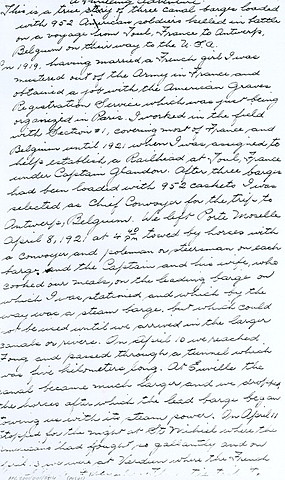 This is a true story of three canal barges loaded
with 952 American soldiers killed in battle
on a voyage from Toul, France to Antwerp,
Belgium on their way to the U.S.A.
In 1919, having married a French girl I was
mustered out of the Army in France and
obtained a job with the American Graves
Registration Service which was just being
organized in Paris. I worked in the field
with Section #1, covering most of France and
Belgium until 1921 when I was assigned to
help establish a Railhead at Toul, France
under Captain After three barges
had been loaded with 952 caskets I was
selected as Chief Convoyer for the trip to
Antwerp, Belgium. We left Porte Moselle
April 8, 1921 at 4 PM towed by horses with
a convoyer and poleman or steersman on each
barge and the Captain and his wife, who
cooked our meals, on the leading barge on
which I was stationed and which by the
way was a steam barge, but which could
not be used until we arrived in the larger
canals or rivers. On April 10 we reached
Foug and passed through a tunnel which
was five kilometers long. At Euville the
canal became much larger and we dropped
the horses after which the lead barge began
towing us with its steam power. On April 11
stopped for the night at St Mihiel where the
Americans had fought so gallantly and on
we were at Verdun where the French